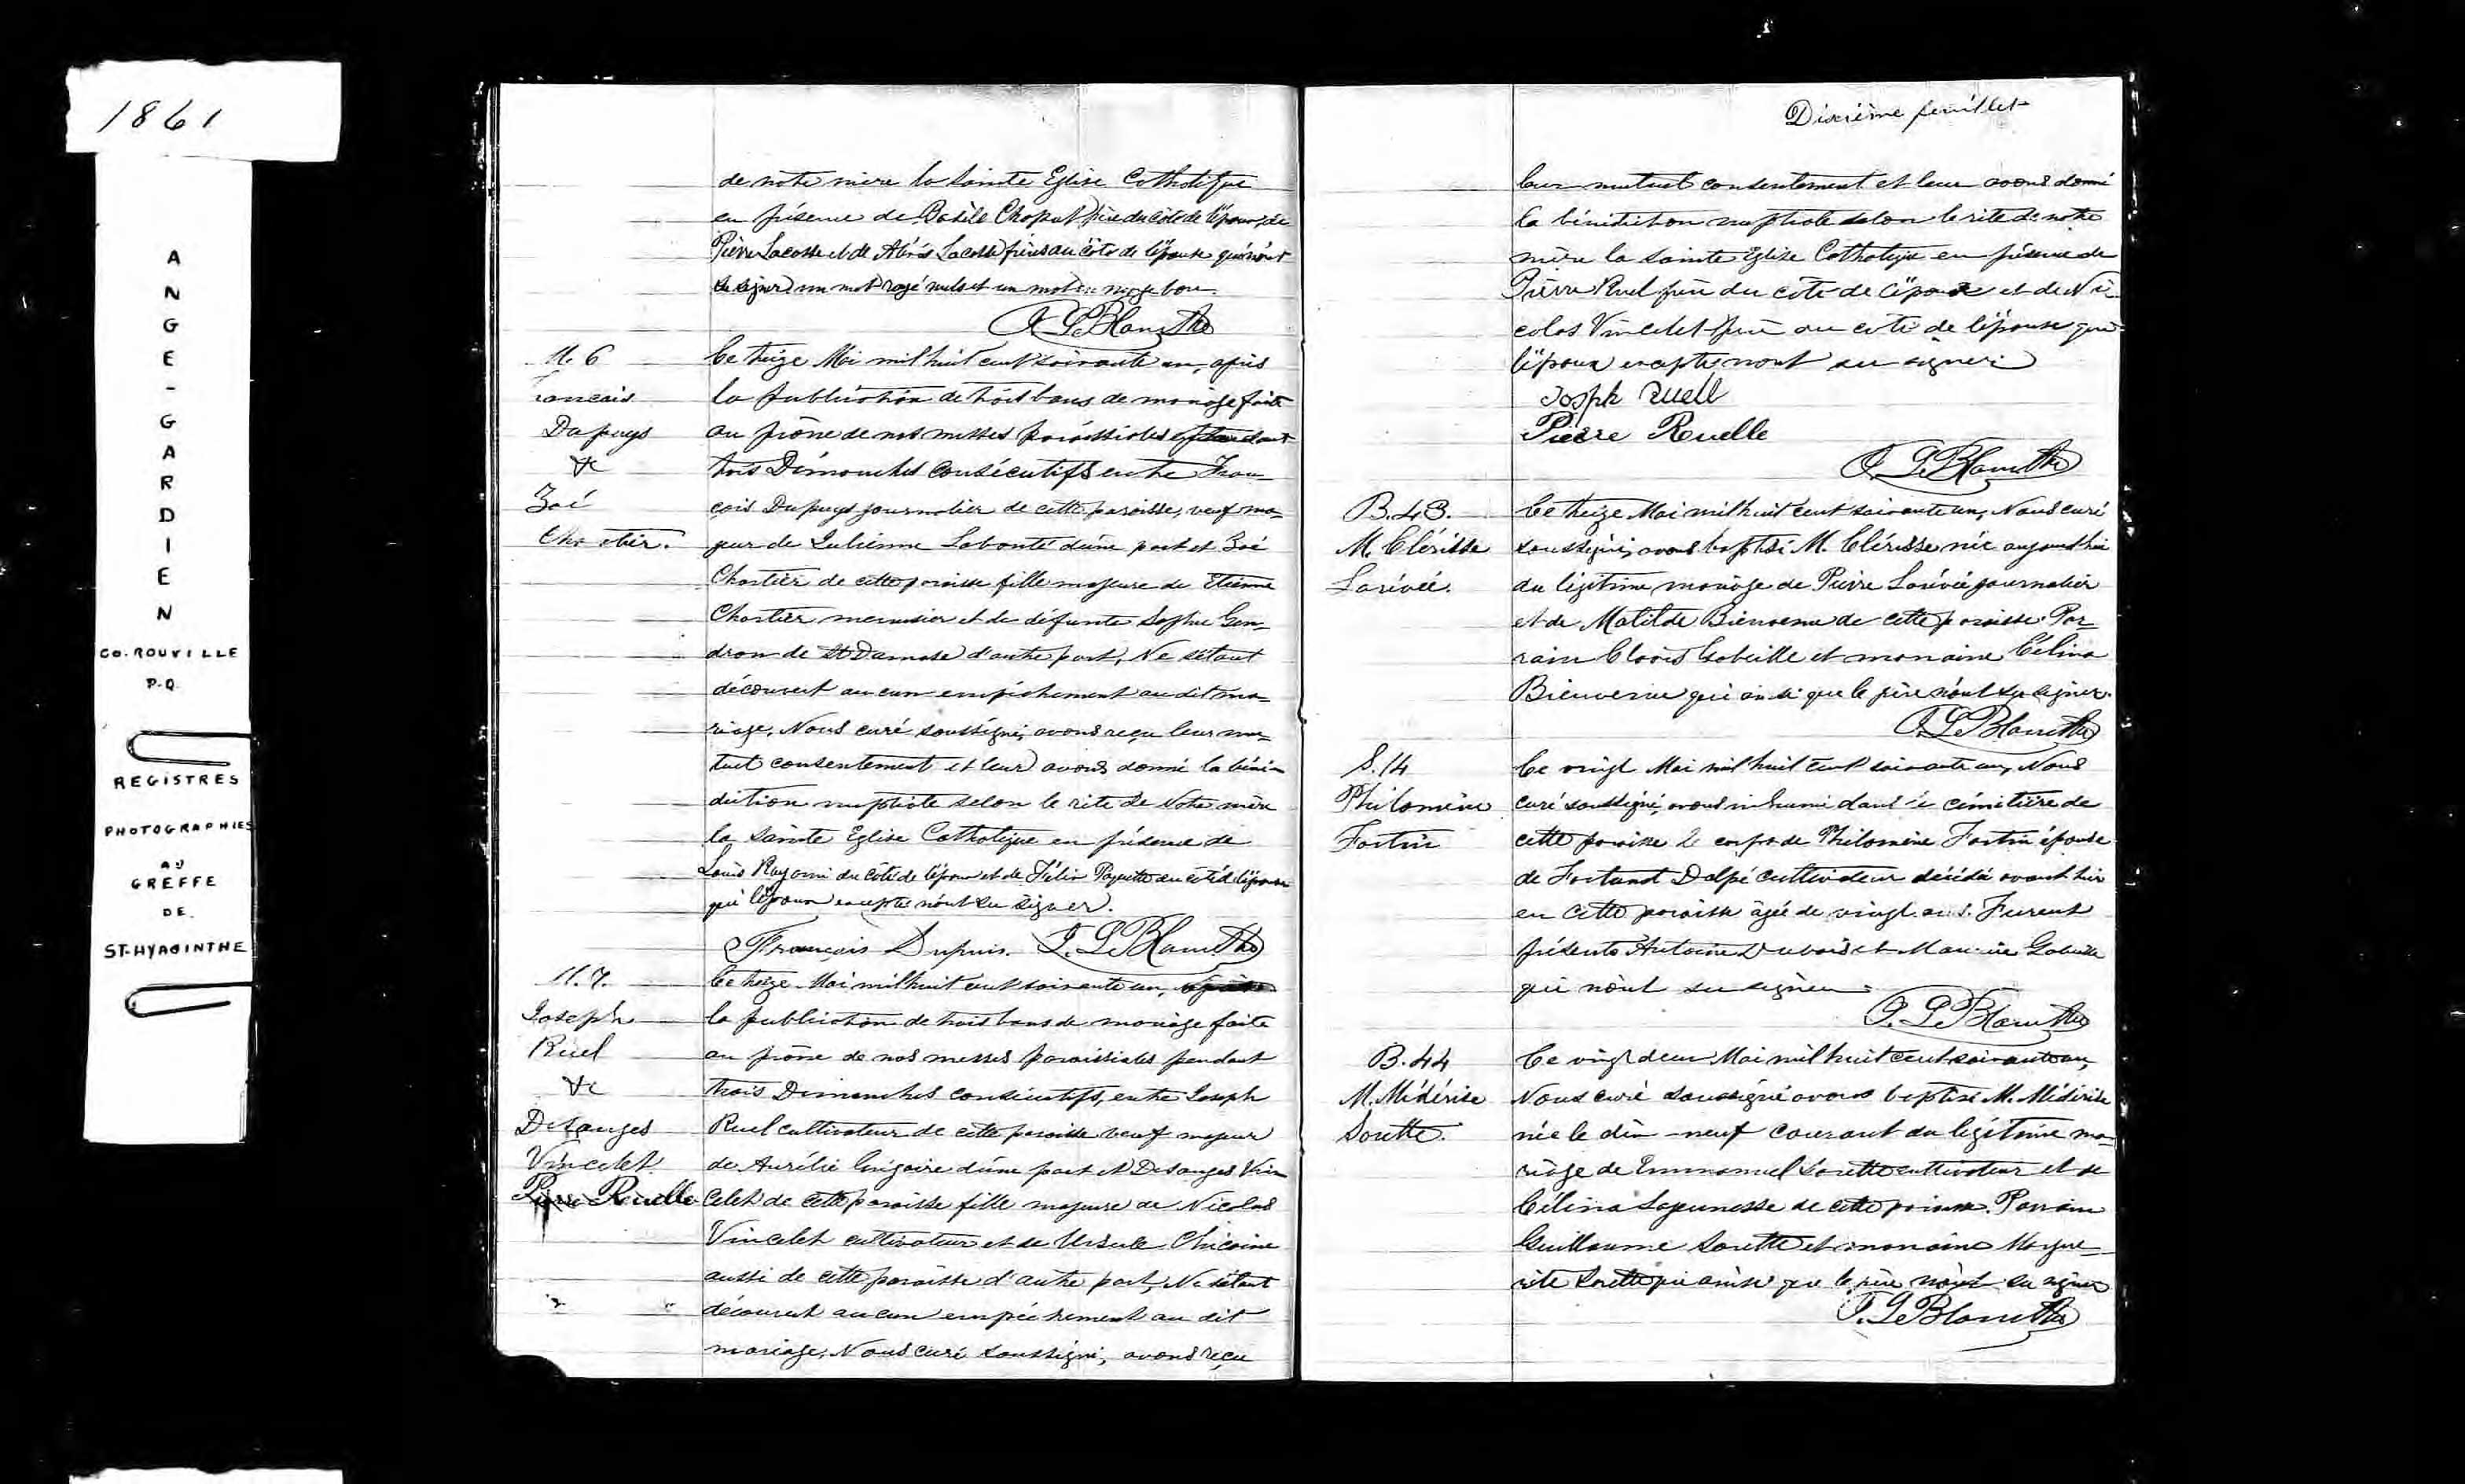 1861
ANGE-GARDIEN
CO. ROUVILLE
P.Q.
REGISTRES
PHOTOGRAPHIES
AU
GREFFE
DE
ST-HYACINTHE
de notre mère la Sainte Eglise Catholique
en présence de Basile Chaput père du côté de l'époux, de
Pierre Lacoste et de Lacoste frères au côté de l'épouse qui n'ont
su signer un mot rayé nul et un mot en marge bon.
M. 6
François
Dupuys
&
Zoé
Chartier.
Ce treize Mai mil huit cent soixante un, après
la publication de trois bans de mariage faite
au prône de nos messes paroissiales pendant
trois Dimanches consécutifs entre Fran-
çois Dupuys journalier de cette paroisse, veuf ma-
jeur de Julienne Labonté d'une part et Zoé
Chartier de cette paroisse fille majeure de Etienne
Chartier menuisier et de défunte Sophie Gen-
dron de St Damase d'autre part, Ne s'étant
découvert aucun empêchement au dit ma-
riage, Nous curé soussigné, avons reçu leur mu-
tuel consentement et leur avons donné la béné-
diction nuptiale selon le rite de Notre mère
la Sainte Eglise Catholique en présence de
Louis du côté de l'époux et de Félix Paquette au côté de l'épouse
qui l'époux excepté n'ont su signer.
François Dupuis.
M. 7.
Joseph
Ruel
&
Desanges
Vincelet
Pierre Ruelle
Ce treize Mai mil huit cent soixante un, après
la publication de trois bans de mariage faite
au prône de nos messes paroissiales pendant
trois Dimanches consécutifs, entre Joseph
Ruel cultivateur de cette paroisse veuf majeur
de Aurélie Grégoire d'une part et Desanges Vin
celet de cette paroisse fille majeure de Nicolas
Vincelet cultivateur et de Ursule Chicoine
aussi de cette paroisse d'autre part, Ne s'étant
découvert aucun empêchement au dit
mariage, Nous curé soussigné, avons reçu
Dixième feuillet
leur mutuel consentement et leur avons donné
la bénédiction nuptiale selon le rite de notre
mère la Sainte Eglise Catholique en présence de
Pierre Ruel père du côté de l'époux et de Ni-
colas Vincelet père au côté de l'épouse qui
l'époux excepté n'ont su signer
Josph Ruell
Pierre Ruelle
B. 43.
M. Clérisse
Larivée.
Ce treize Mai mil huit cent soixante un, Nous curé
soussigné, avons baptisé M. Clérisse née aujourd'hui
du légitime mariage de Pierre Larivée journalier
et de Matilde Bienvenue de cette paroisse. Par-
rain Clovis Gobeille et marraine Célina
Bienvenue qui ainsi que le père n'ont su signer.
S. 14
Philomène
Fortin
Ce vingt Mai mil huit cent soixante un, Nous
curé soussigné, avons inhumé dans le cimetière de
cette paroisse le corps de Philomène Fortin épouse
de Fortunat Dalpé cultivateur décédé avant hier
en cette paroisse âgée de vingt ans. Furent
présents Antoine Dubois et Gobeille
qui n'ont su signer
B. 44
M. Médérise
Sorette.
Ce vingt deux Mai mil huit cent soixante un,
Nous curé soussigné avons baptisé M. Médérise
née le dix-neuf courant du légitime ma-
riage de Emmanuel Sorette cultivateur et de
Célina Lajeunesse de cette paroisse. Parrain
Guillaume Sorette et marraine Margue-
rite Sorette qui ainsi que le père n'ont su signer